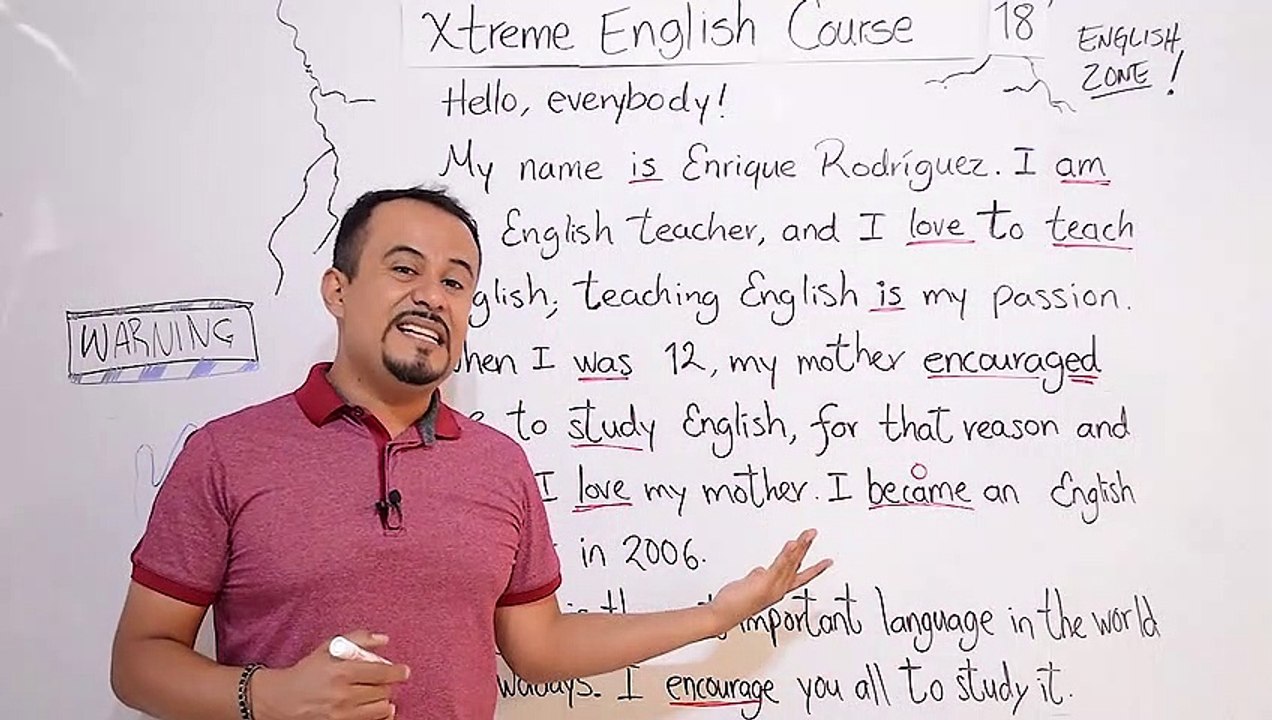 Xtreme English Course 18
ENGLISH
ZONE!
Hello, everybody!
My name is Enrique Rodríguez. I am
English teacher, and I love to teach
glish; teaching English is my passion.
hen I was 12, my mother encouraged
to study English, for that reason and
I love my mother. I became an English
in 2006.
important language in the world
wadays. I encourage you all to study it.
WARNING